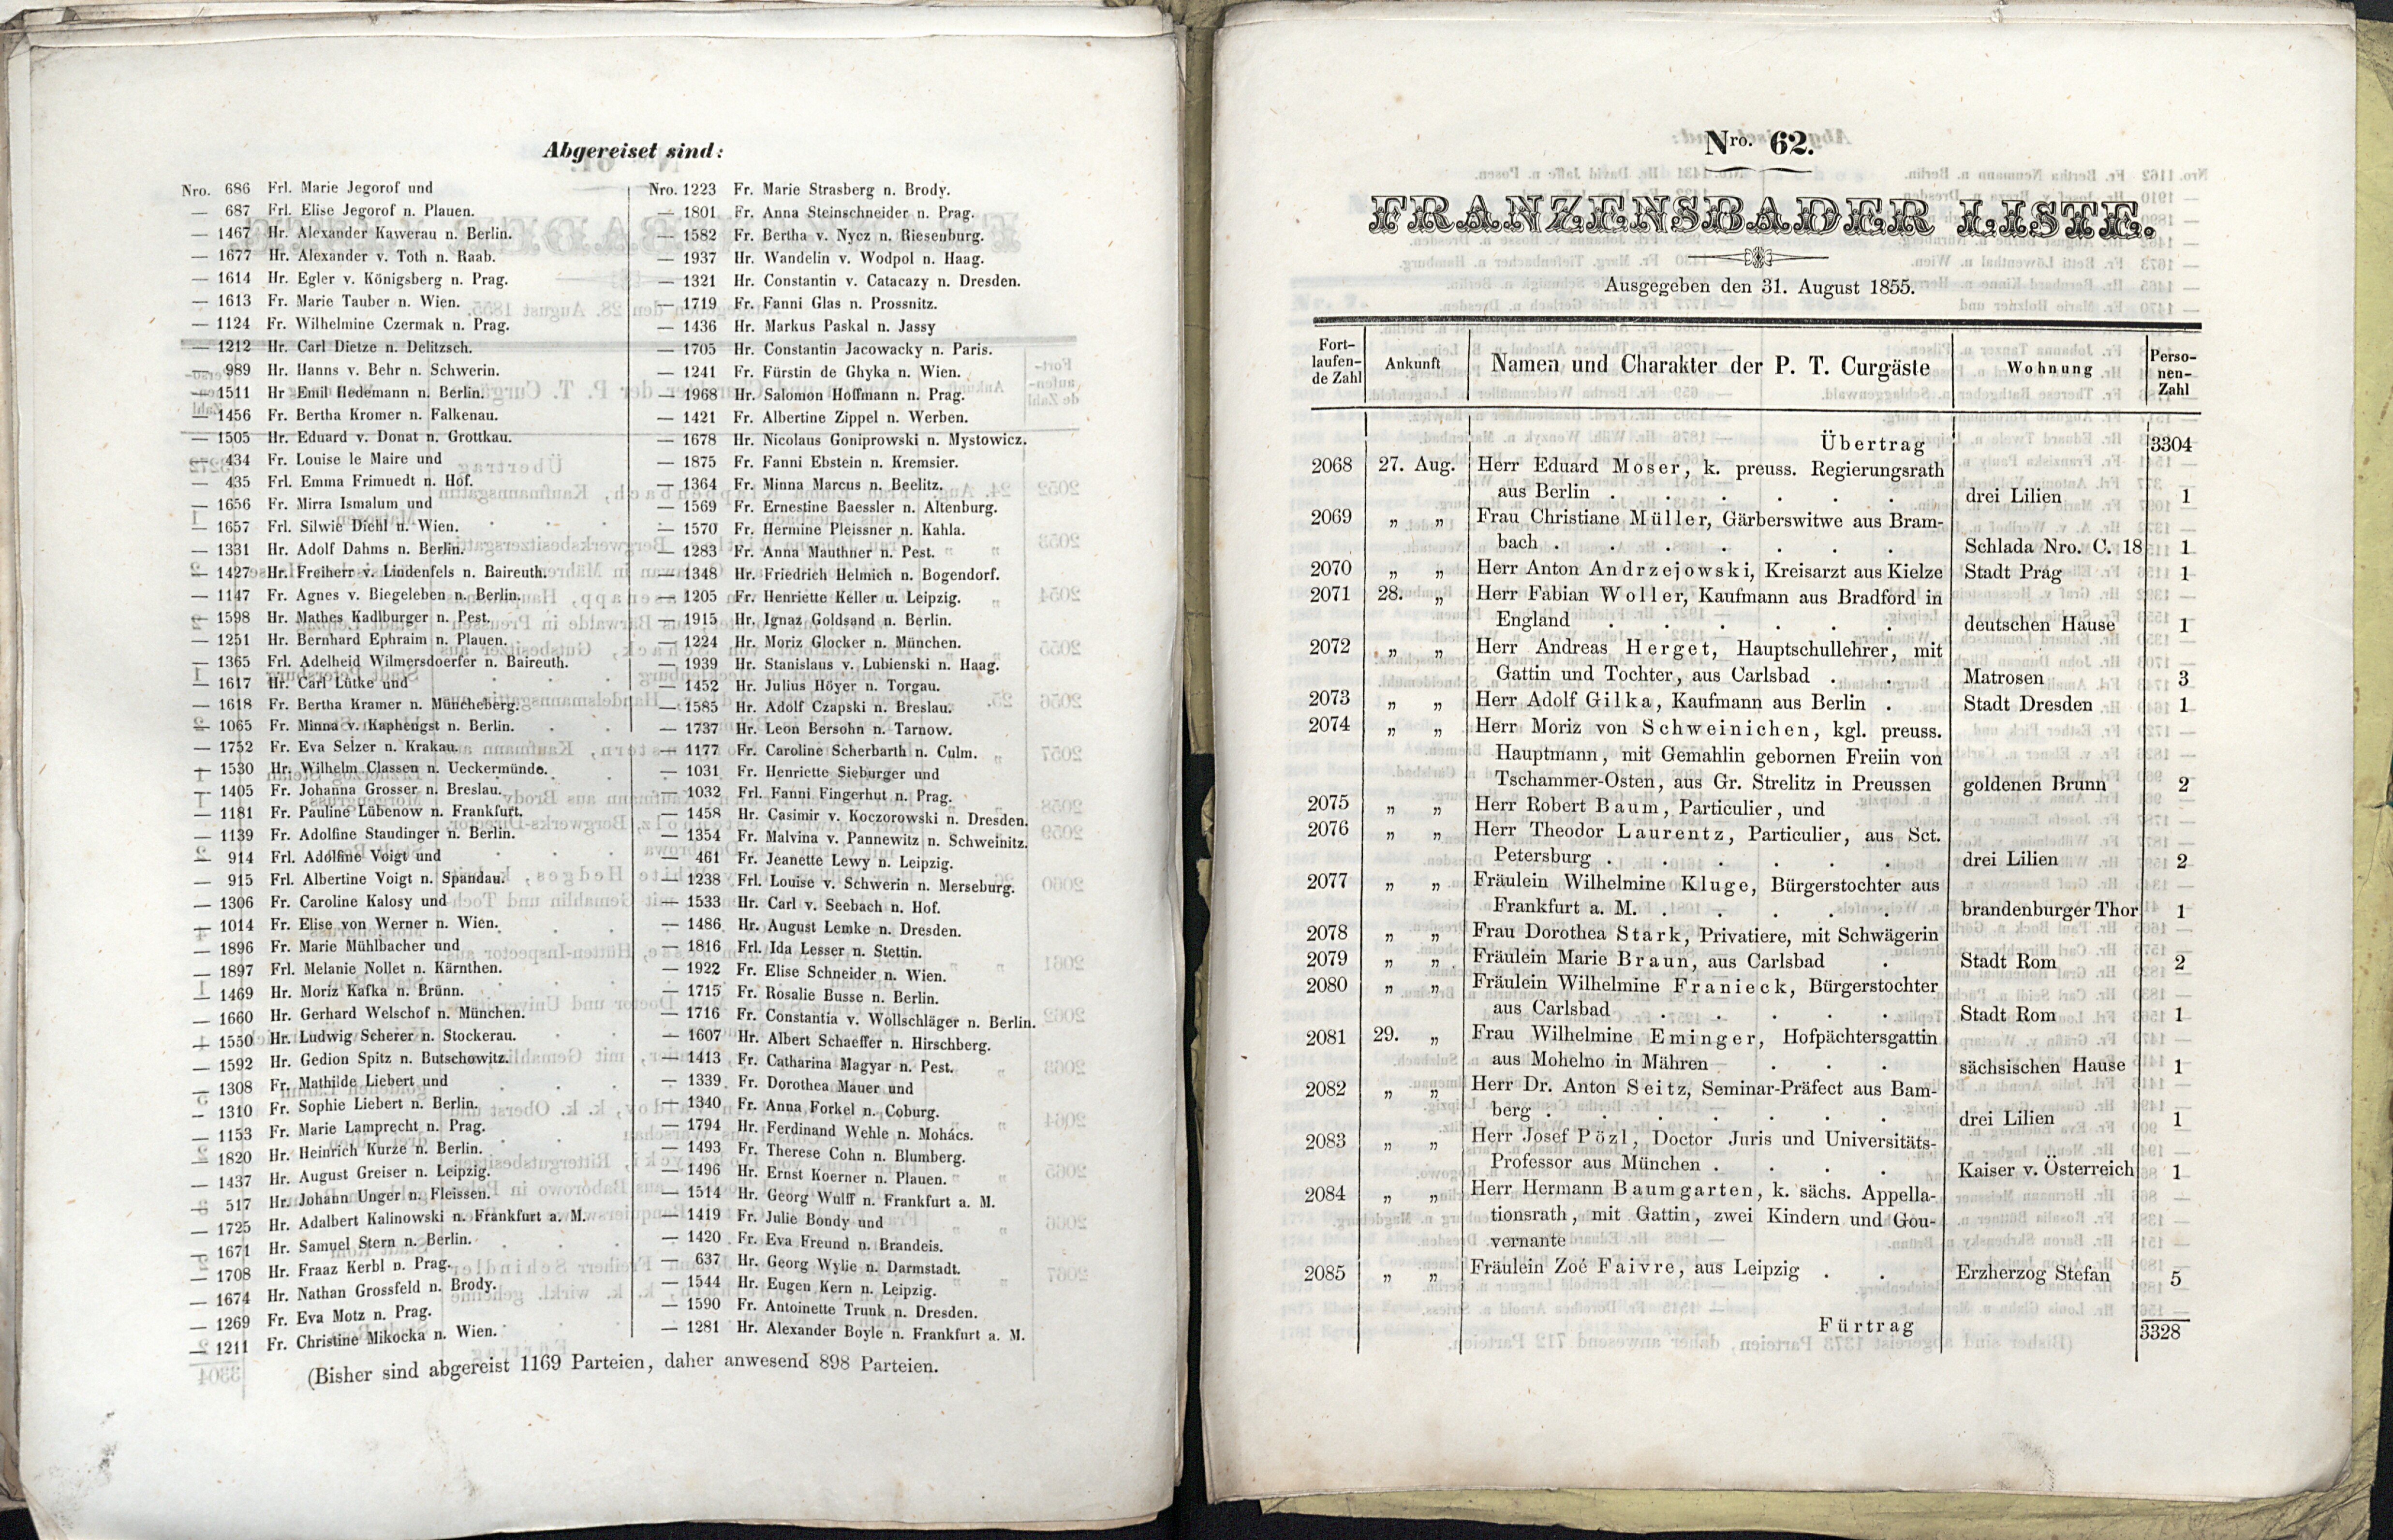 Abgereiset sind:
Nro. 686 Frl. Marie Jegorof und
— 687 Frl. Elise Jegorof n. Plauen.
— 1467 Hr. Alexander Kawerau n. Berlin.
— 1677 Hr. Alexander v. Toth n. Raab.
— 1614 Hr. Egler v. Königsberg n. Prag.
— 1613 Fr. Marie Tauber n. Wien.
— 1124 Fr. Wilhelmine Czermak n. Prag.
— 1212 Hr. Carl Dietze n. Delitzsch.
— 989 Hr. Hanns v. Behr n. Schwerin.
— 1511 Hr Emil Hedemann n. Berlin.
— 1456 Fr. Bertha Kromer n. Falkenau.
— 1505 Hr. Eduard v. Donat n. Grottkau.
— 434 Fr. Louise le Maire und
— 435 Frl. Emma Frimuedt n. Hof.
— 1656 Fr. Mirra Ismalum und
— 1657 Frl. Silwie Diehl n. Wien.
— 1331 Hr. Adolf Dahms n. Berlin.
— 1427 Hr. Freiherr v. Lindenfels n. Baireuth.
— 1147 Fr. Agnes v. Biegeleben n. Berlin.
— 1598 Hr. Mathes Kadlburger n. Pest.
— 1251 Hr. Bernhard Ephraim n. Plauen.
— 1365 Frl. Adelheid Wilmersdoerfer n. Baireuth.
— 1617 Hr. Carl Lütke und
— 1618 Fr. Bertha Kramer n. Müncheberg.
— 1065 Fr. Minna v. Kaphengst n. Berlin.
— 1752 Fr. Eva Selzer n. Krakau.
— 1530 Hr. Wilhelm Classen n. Ueckermünde.
— 1405 Fr. Johanna Grosser n. Breslau.
— 1181 Fr. Pauline Lübenow n. Frankfurt.
— 1139 Fr. Adolfine Staudinger n. Berlin.
— 914 Frl. Adolfine Voigt und
— 915 Frl. Albertine Voigt n. Spandau.
— 1306 Fr. Caroline Kalosy und
— 1014 Fr. Elise von Werner n. Wien.
— 1896 Fr. Marie Mühlbacher und
— 1897 Frl. Melanie Nollet n. Kärnthen.
— 1469 Hr. Moriz Kafka n. Brünn.
— 1660 Hr. Gerhard Welschof n. München.
— 1550 Hr. Ludwig Scherer n. Stockerau.
— 1592 Hr. Gedion Spitz n. Butschowitz.
— 1308 Fr. Mathilde Liebert und
— 1310 Fr. Sophie Liebert n. Berlin.
— 1153 Fr. Marie Lamprecht n. Prag.
— 1820 Hr. Heinrich Kurze n. Berlin.
— 1437 Hr. August Greiser n. Leipzig.
— 517 Hr. Johann Unger n. Fleissen.
— 1725 Hr. Adalbert Kalinowski n. Frankfurt a. M.
— 1671 Hr. Samuel Stern n. Berlin.
— 1708 Hr. Fraaz Kerbl n. Prag.
— 1674 Hr. Nathan Grossfeld n. Brody.
— 1269 Fr. Eva Motz n. Prag.
— 1211 Fr. Christine Mikocka n. Wien.
Nro. 1223 Fr. Marie Strasberg n. Brody.
— 1801 Fr. Anna Steinschneider n. Prag.
— 1582 Fr. Bertha v. Nycz n. Riesenburg.
— 1937 Hr. Wandelin v. Wodpol n. Haag.
— 1321 Hr. Constantin v. Catacazy n. Dresden.
— 1719 Fr. Fanni Glas n. Prossnitz.
— 1436 Hr. Markus Paskal n. Jassy
— 1705 Hr. Constantin Jacowacky n. Paris.
— 1241 Fr. Fürstin de Ghyka n. Wien.
— 1968 Hr. Salomon Hoffmann n. Prag.
— 1421 Fr. Albertine Zippel n. Werben.
— 1678 Hr. Nicolaus Goniprowski n. Mystowicz.
— 1875 Fr. Fanni Ebstein n. Kremsier.
— 1364 Fr. Minna Marcus n. Beelitz.
— 1569 Fr. Ernestine Baessler n. Altenburg.
— 1570 Fr. Hermine Pleissner n. Kahla.
— 1283 Fr. Anna Mauthner n. Pest.
— 1348 Hr. Friedrich Helmich n. Bogendorf.
— 1205 Fr. Henriette Keller u. Leipzig.
— 1915 Hr. Ignaz Goldsand n. Berlin.
— 1224 Hr. Moriz Glocker n. München.
— 1939 Hr. Stanislaus v. Lubienski n. Haag.
— 1452 Hr. Julius Höyer n. Torgau.
— 1585 Hr. Adolf Czapski n. Breslau.
— 1737 Hr. Leon Bersohn n. Tarnow.
— 1177 Fr. Caroline Scherbarth n. Culm.
— 1031 Fr. Henriette Sieburger und
— 1032 Frl. Fanni Fingerhut n. Prag.
— 1458 Hr. Casimir v. Koczorowski n. Dresden.
— 1354 Fr. Malvina v. Pannewitz n. Schweinitz.
— 461 Fr. Jeanette Lewy n. Leipzig.
— 1238 Frl. Louise v. Schwerin n. Merseburg.
— 1533 Hr. Carl v. Seebach n. Hof.
— 1486 Hr. August Lemke n. Dresden.
— 1816 Frl. Ida Lesser n. Stettin.
— 1922 Fr. Elise Schneider n. Wien.
— 1715 Fr. Rosalie Busse n. Berlin.
— 1716 Fr. Constantia v. Wollschläger n. Berlin.
— 1607 Hr. Albert Schaeffer n. Hirschberg.
— 1413 Fr. Catharina Magyar n. Pest.
— 1339 Fr. Dorothea Mauer und
— 1340 Fr. Anna Forkel n. Coburg.
— 1794 Hr. Ferdinand Wehle n. Mohács.
— 1493 Fr. Therese Cohn n. Blumberg.
— 1496 Hr. Ernst Koerner n. Plauen.
— 1514 Hr. Georg Wulff n. Frankfurt a. M.
— 1419 Fr. Julie Bondy und
— 1420 Fr. Eva Freund n. Brandeis.
— 637 Hr. Georg Wylie n. Darmstadt.
— 1544 Hr. Eugen Kern n. Leipzig.
— 1590 Fr. Antoinette Trunk n. Dresden.
— 1281 Hr. Alexander Boyle n. Frankfurt a. M.
(Bisher sind abgereist 1169 Parteien, daher anwesend 898 Parteien.
Nro. 62.
FRANZENSBADER LISTE.
Ausgegeben den 31. August 1855.
Fort-laufen-de Zahl | Ankunft | Namen und Charakter der P. T. Curgäste | Wohnung | Perso-nen-Zahl
Übertrag 3304
2068 27. Aug. Herr Eduard Moser, k. preuss. Regierungsrath
aus Berlin . . . . . . drei Lilien 1
2069 „ „ Frau Christiane Müller, Gärberswitwe aus Bram-
bach . . . . . . . Schlada Nro. C. 18 1
2070 „ „ Herr Anton Andrzejowski, Kreisarzt aus Kielze Stadt Prag 1
2071 28. „ Herr Fabian Woller, Kaufmann aus Bradford in
England . . . . . . deutschen Hause 1
2072 „ „ Herr Andreas Herget, Hauptschullehrer, mit
Gattin und Tochter, aus Carlsbad . . Matrosen 3
2073 „ „ Herr Adolf Gilka, Kaufmann aus Berlin . Stadt Dresden 1
2074 „ „ Herr Moriz von Schweinichen, kgl. preuss.
Hauptmann, mit Gemahlin gebornen Freiin von
Tschammer-Osten, aus Gr. Strelitz in Preussen goldenen Brunn 2
2075 „ „ Herr Robert Baum, Particulier, und
2076 „ „ Herr Theodor Laurentz, Particulier, aus Sct.
Petersburg . . . . . . drei Lilien 2
2077 „ „ Fräulein Wilhelmine Kluge, Bürgerstochter aus
Frankfurt a. M. . . . . . brandenburger Thor 1
2078 „ „ Frau Dorothea Stark, Privatiere, mit Schwägerin
2079 „ „ Fräulein Marie Braun, aus Carlsbad . Stadt Rom 2
2080 „ „ Fräulein Wilhelmine Franieck, Bürgerstochter
aus Carlsbad . . . . . Stadt Rom 1
2081 29. „ Frau Wilhelmine Eminger, Hofpächtersgattin
aus Mohelno in Mähren . . . sächsischen Hause 1
2082 „ „ Herr Dr. Anton Seitz, Seminar-Präfect aus Bam-
berg . . . . . . . drei Lilien 1
2083 „ „ Herr Josef Pözl, Doctor Juris und Universitäts-
Professor aus München . . . . Kaiser v. Österreich 1
2084 „ „ Herr Hermann Baumgarten, k. sächs. Appella-
tionsrath, mit Gattin, zwei Kindern und Gou-
vernante
2085 „ „ Fräulein Zoé Faivre, aus Leipzig . . Erzherzog Stefan 5
Fürtrag 3328